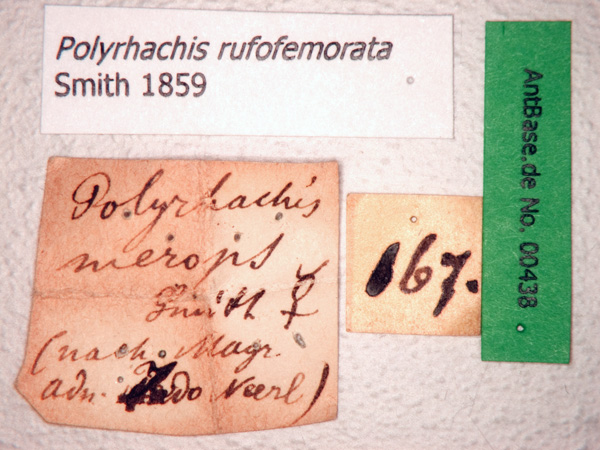 Polyrhachis rufofemorata
Smith 1859
Polyrhachis
merops
Smith ☿
(nach Mayr.
adn. Indo Neerl)
167.
AntBase.de No. 00438